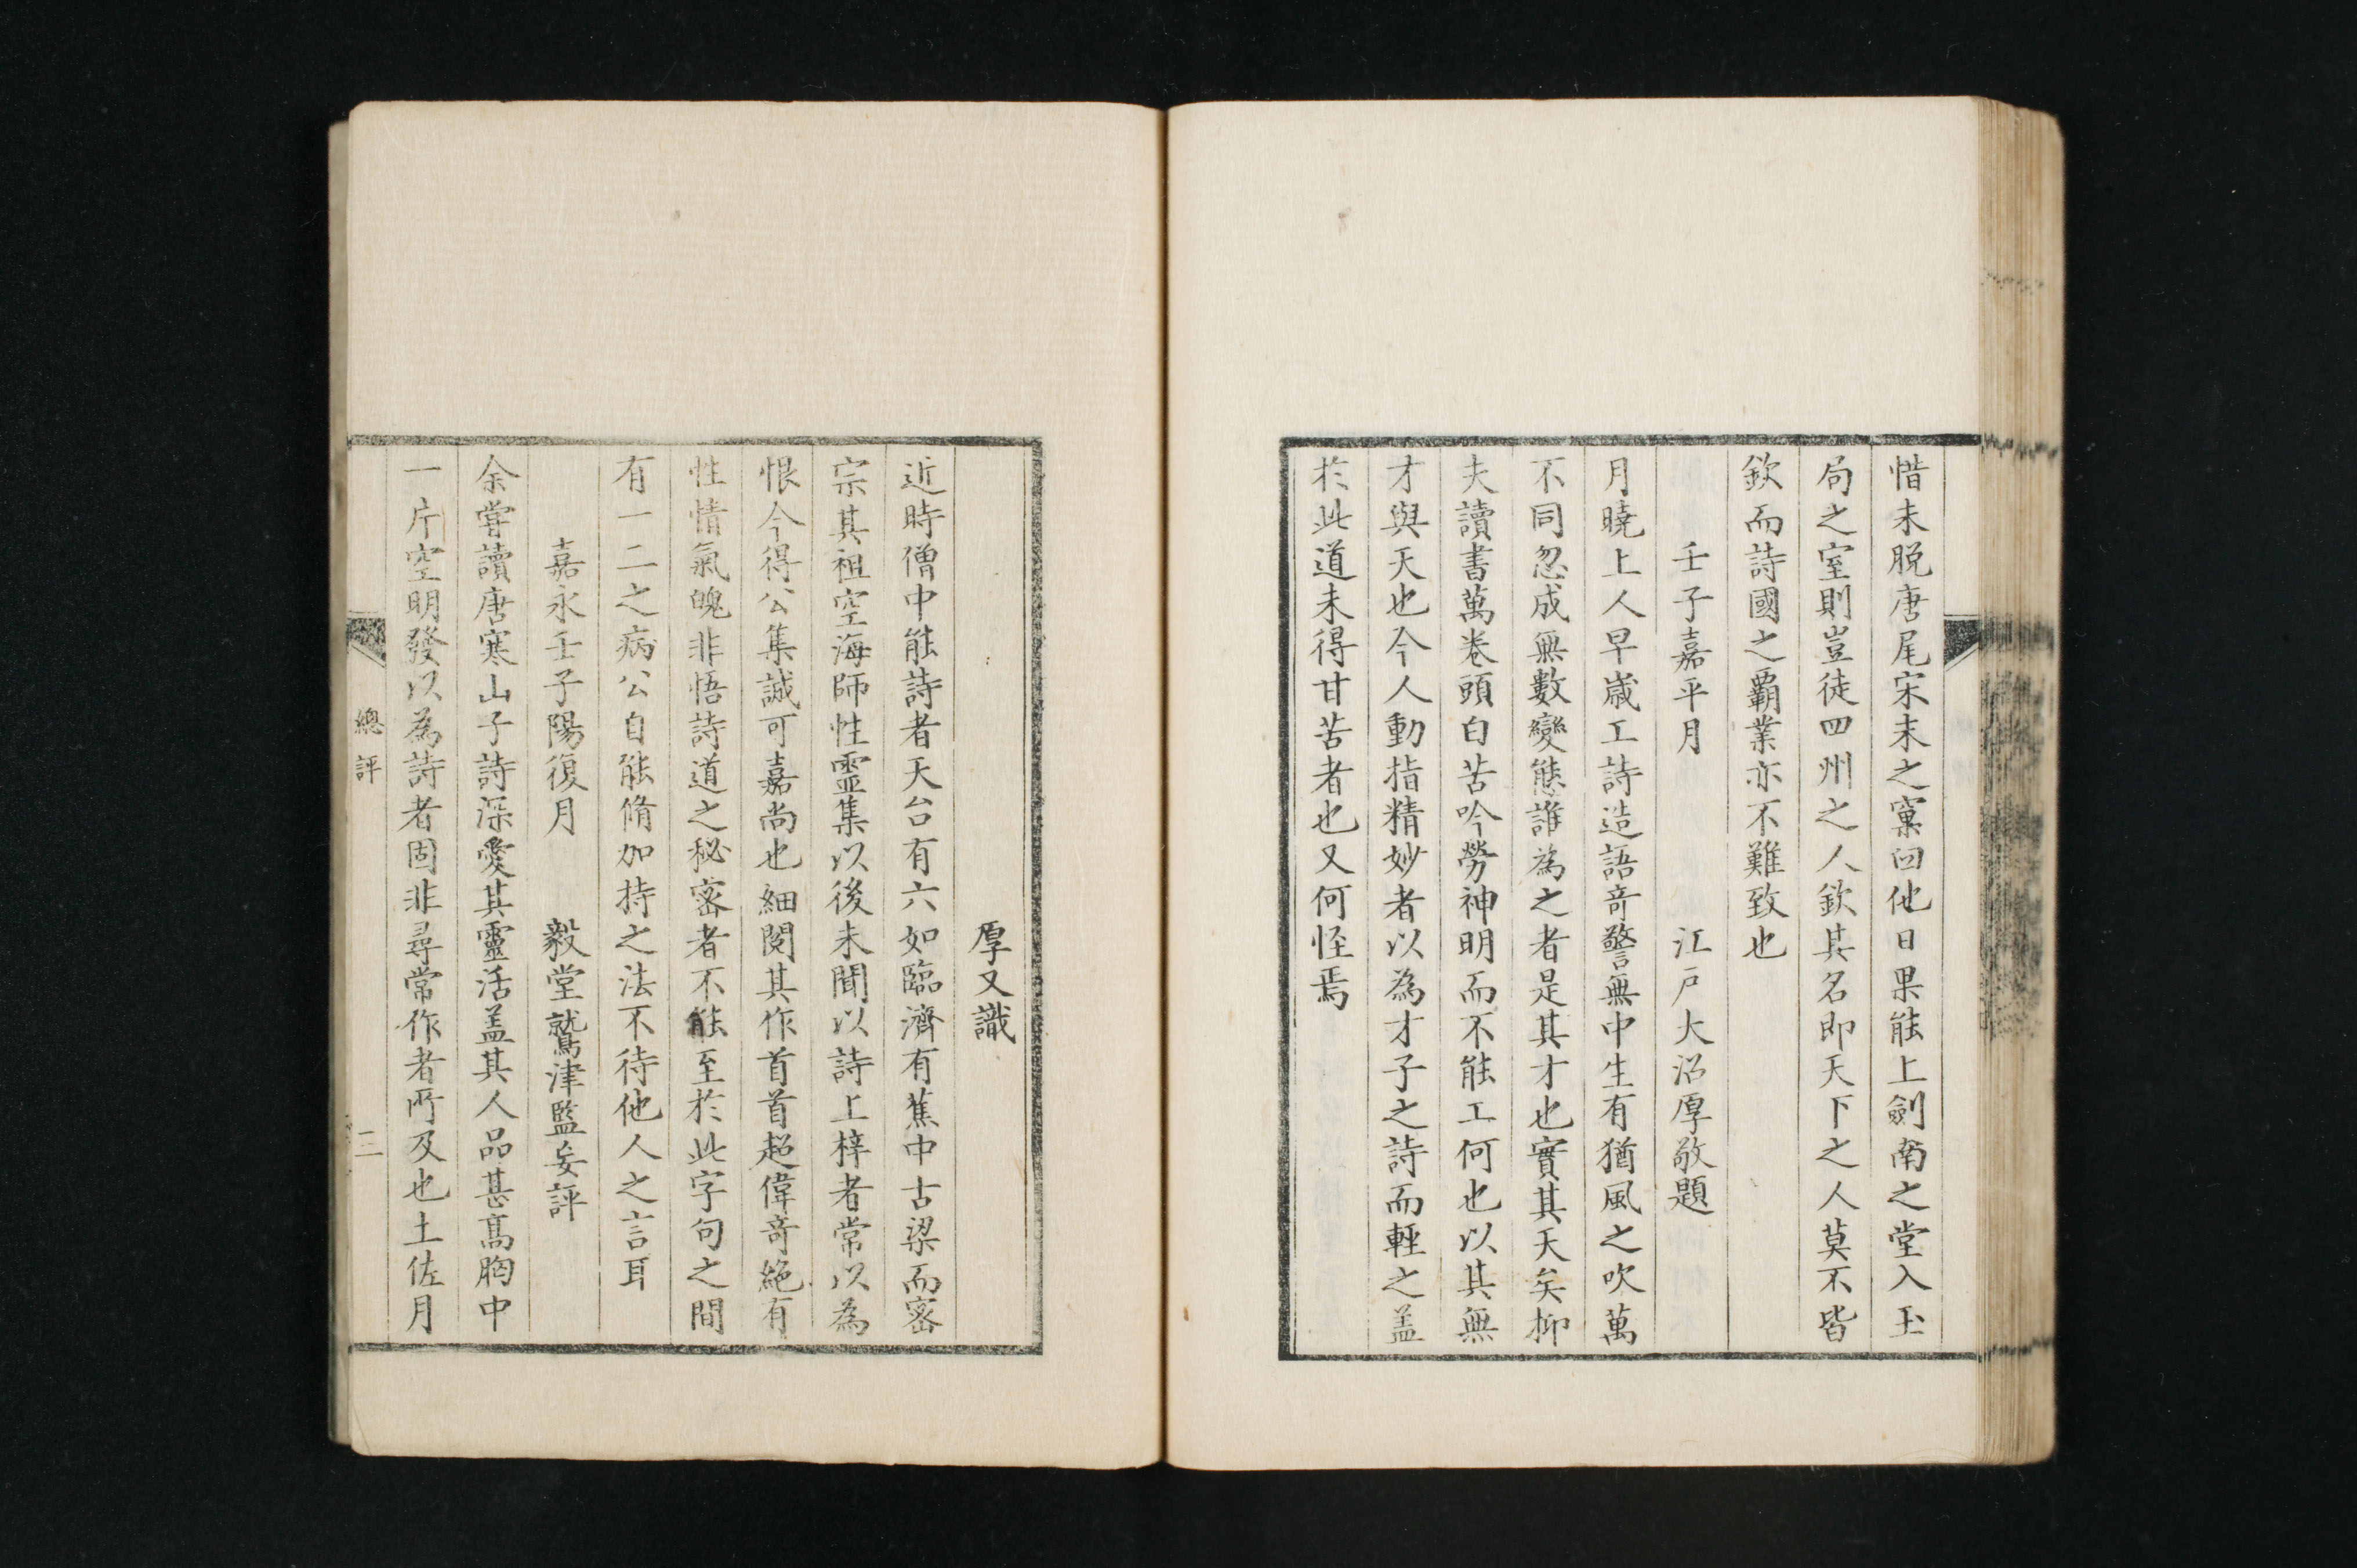 惜未脱唐尾宋末之窠臼他日果能上劍南之堂入玉
局之室則豈徒四州之人欽其名即天下之人莫不皆
欽而詩國之覇業亦不難致也
壬子嘉平月　江戸大沼厚敬題
月曉上人早歳工詩造語奇警無中生有猶風之吹萬
不同忽成無數變態誰為之者是其才也實其天矣抑
夫讀書萬卷頭白苦吟勞神明而不能工何也以其無
才與天也今人動指精妙者以為才子之詩而輕之盖
於此道未得甘苦者也又何怪焉
厚又識
近時僧中能詩者天台有六如臨濟有蕉中古梁而密
宗其祖空海師性霊集以後未聞以詩上梓者常以為
恨今得公集誠可嘉尚也細閲其作首首超偉奇絶有
性情氣魄非悟詩道之秘密者不能至於此字句之間
有一二之病公自能脩加持之法不待他人之言耳
嘉永壬子陽復月　毅堂鷲津監妄評
余嘗讀唐寒山子詩深愛其靈活盖其人品甚髙胸中
一片空明發以為詩者固非尋常作者所及也土佐月
總評　三